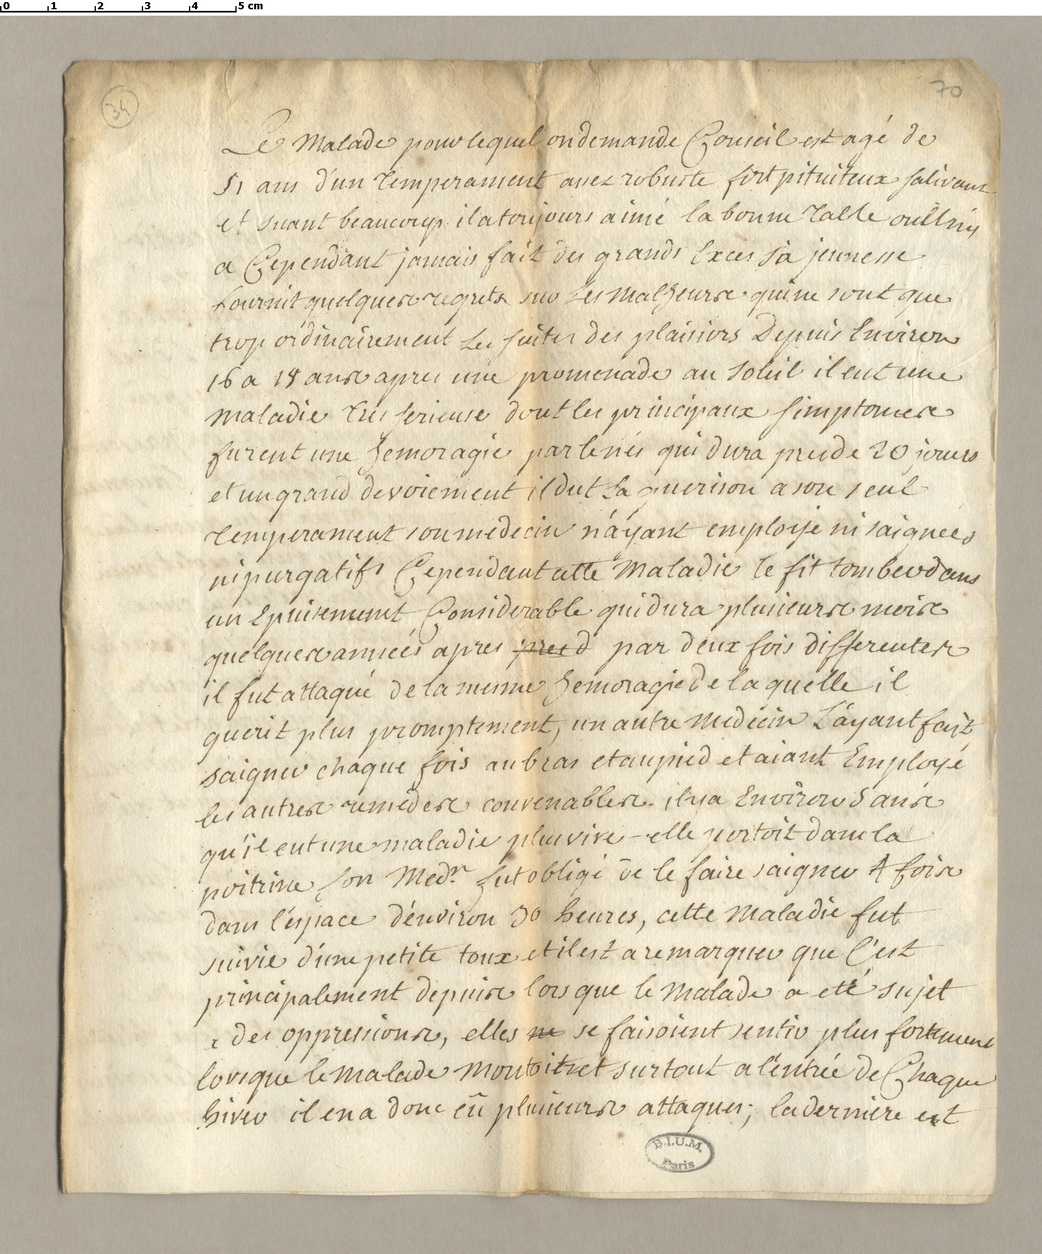 0 1 2 3 4 5 cm
34
70
Le Malade pour lequel on demande Conseil est agé de
51 ans d'un temperament assez robuste fort pituiteux salivant
et suant beaucoup il a toujours aimé la bonne table
a Cependant jamais fait des grands Exces sa jeunesse
fournit quelques regrets sur les malheurs qui ne sont que
trop ordinairement les suites des plaisirs Depuis Environ
16 a 18 ans apres une promenade au soleil il eut une
maladie tres serieuse dont les principaux simptomes
furent une hemoragie par le nés qui dura pres de 20 jours
et un grand devoiement il dut sa guerison a son seul
temperament son medecin n'ayant employé ni saignees
ni purgatifs Cependant cette Maladie le fit tomber dans
un Epuisement Considerable qui dura plusieurs mois
quelques années apres par deux fois differentes
il fut attaqué de la meme hemoragie de laquelle il
guerit plus promptement, un autre Medecin L'ayant fait
saigner chaque fois au bras et au pied et aiant Employé
les autres remedes convenables. il y a Environ 5 ans
qu'il eut une maladie plus vive elle portoit dans la
poitrine son Med.n fut obligé de le faire saigner 4 fois
dans l'espace d'environ 30 heures, cette Maladie fut
suivie d'une petite toux et il est a remarquer que C'est
principalement depuis lors que le Malade a eté sujet
a des oppressions, elles ne se faisoient sentir plus fortement
lorsque le Malade montoit et surtout a l'entrée de Chaque
hiver il en a donc eû plusieurs attaques; la derniere est
B.I.U.M.
Paris